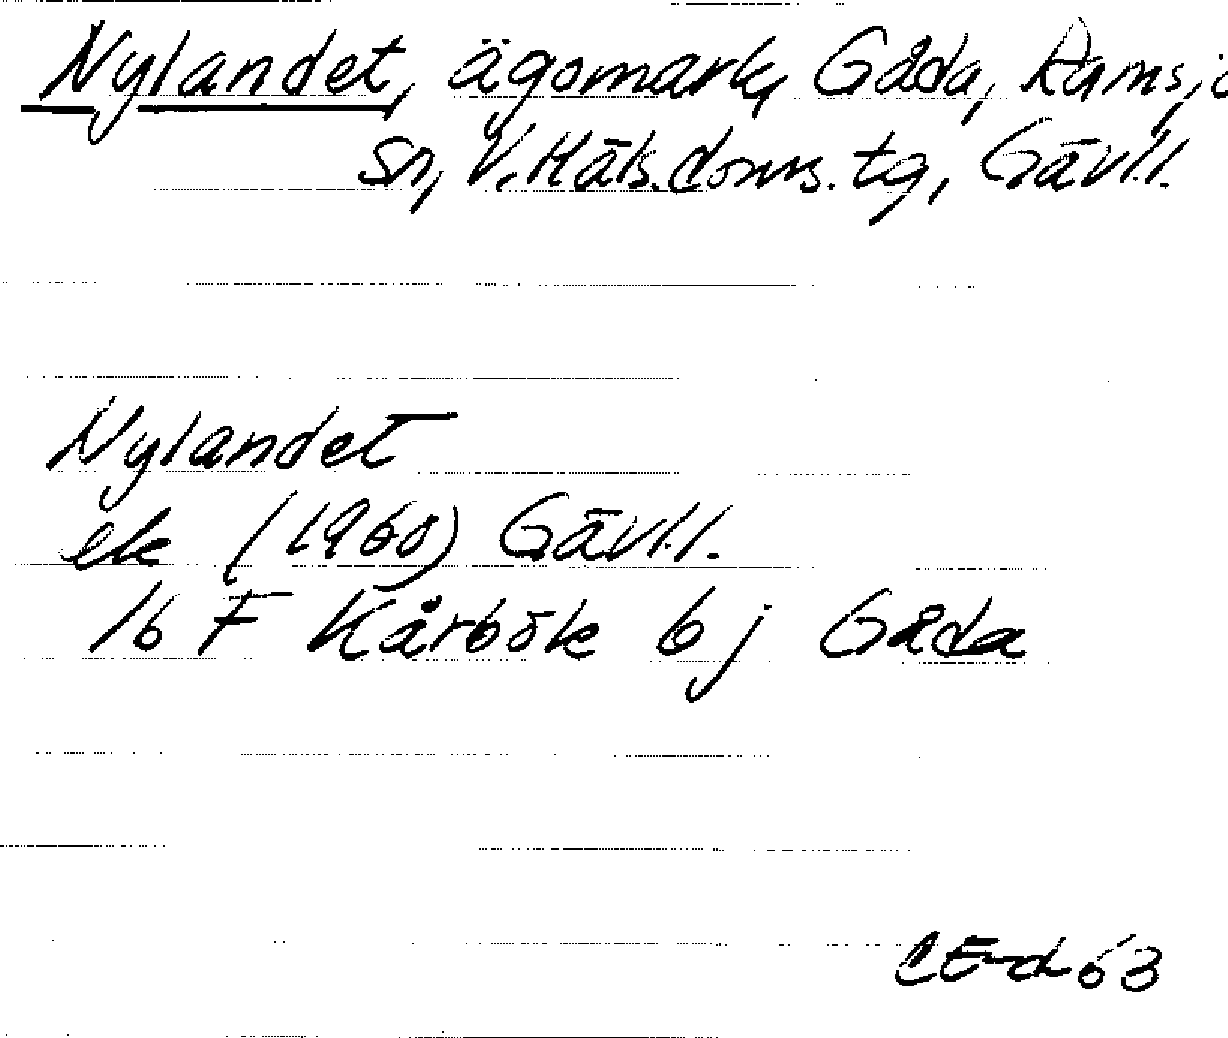 Nylandet, ägomark, Gåda, Ramsjö
sn, V. Häls. doms. tg, Gävl.l.
Nylandet
ek (1960) Gävl.l.
16 F Kårbök 6 j Gåda
CE-d 63